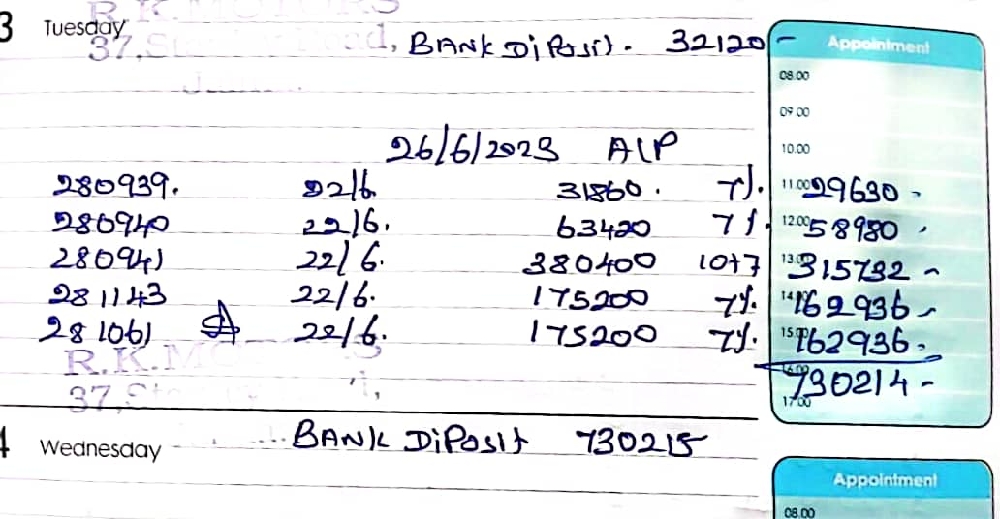 R.K. MOTORS
3 Tuesday
37, BANK DiPosit. 32120 -
Appointment
08.00
09.00
10.00
26/6/2023 AlP
280939. 22/6 31860. 7%. 11.00 29630 -
280940 22/6. 63420 7%. 12.00 58980 -
280941 22/6. 380400 10+7 13.00 315732 -
281143 22/6. 175200 7%. 14.00 162936 -
281061 22/6. 175200 7%. 15.00 162936 -
R.K.MOTORS
16.00 730214 -
37, 17.00
4 Wednesday BANK DiPosit 730215
Appointment
08.00